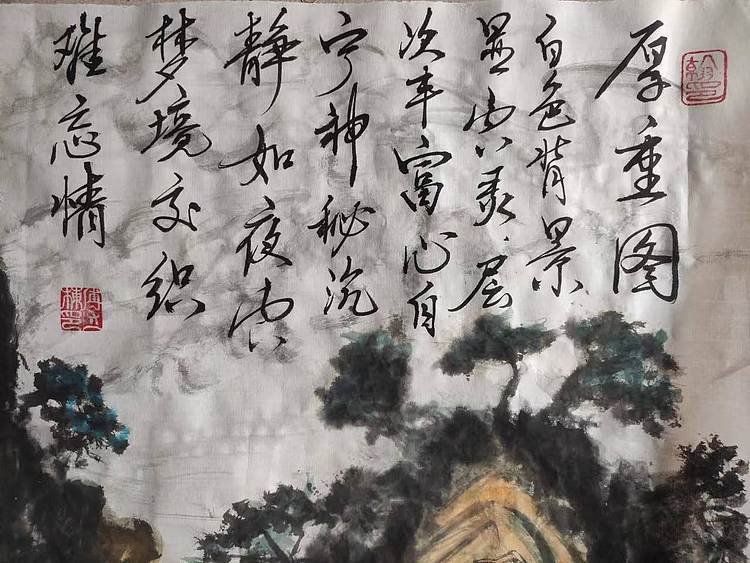 厚重图
白色背景
显空灵层
次丰富心自
宁神秘沉
静如夜空
梦境交织
难忘情